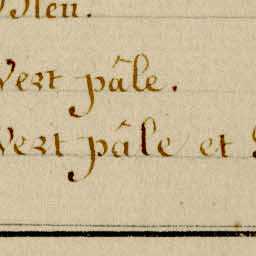 Bleu.
Vert pâle.
Vert pâle et